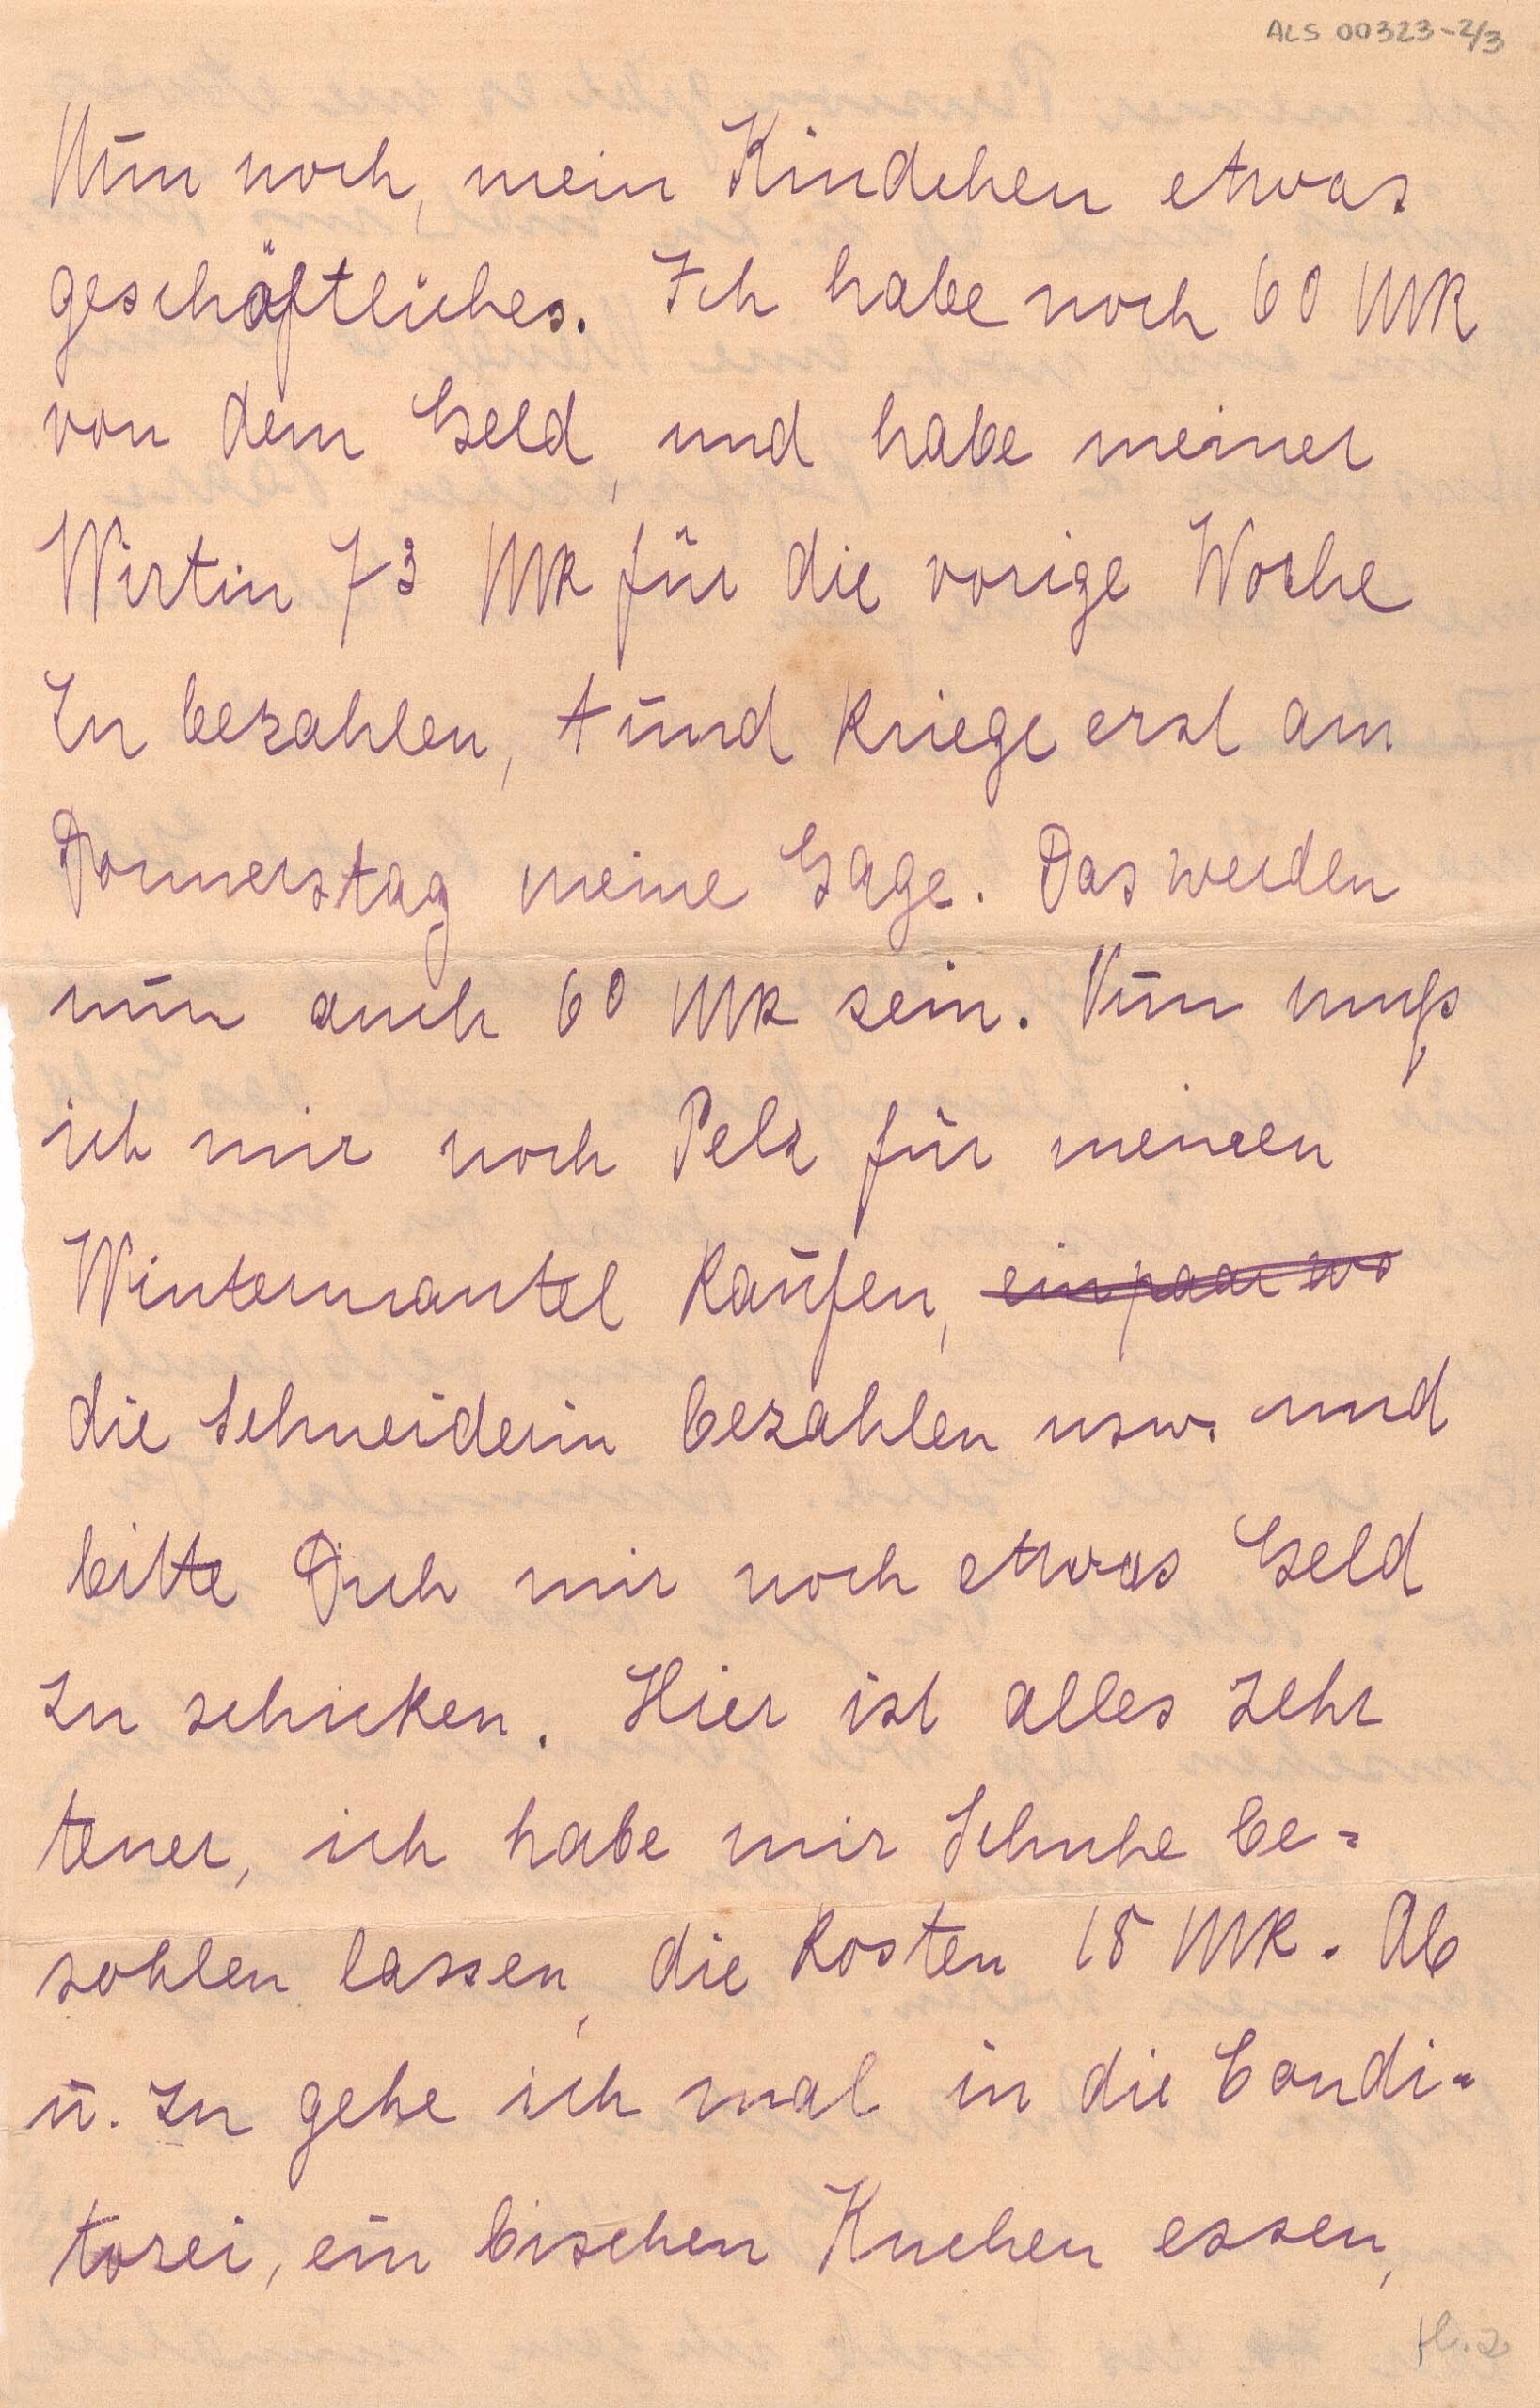 ALS 00323-2/3
Nūn noch, mein Kindchen etwas
geschäftliches. Ich habe noch 60 MK
von dem Geld, und habe meiner
Wirtin 73 MK für die vorige Woche
zu bezahlen, + ūnd kriege erst am
Donnerstag meine Gage. Das werden
nūn auch 60 MK sein. Nūn muß
ich mir noch Pelz für meinen
Wintermantel kaūfen, ein paar wo
die Schneiderin bezahlen usw. und
bitte Dich mir noch etwas Geld
zu schicken. Hier ist alles sehr
teuer, ich habe mir Schuhe be=
sohlen lassen, die kosten 18 MK. Ab
ū. zu gehe ich mal in die Condi=
torei, ein bischen Kuchen essen,